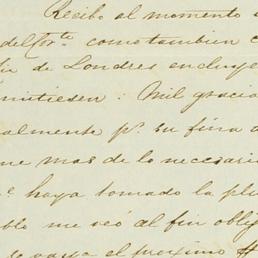 Recibo al momento
del corte. como tambien
de Londres incluye
mitiesen: Mil gracia
almente pr. su fina a
me mas de lo necesario
haya tomado la plu
me veó al fin oblig
vaya el proximo